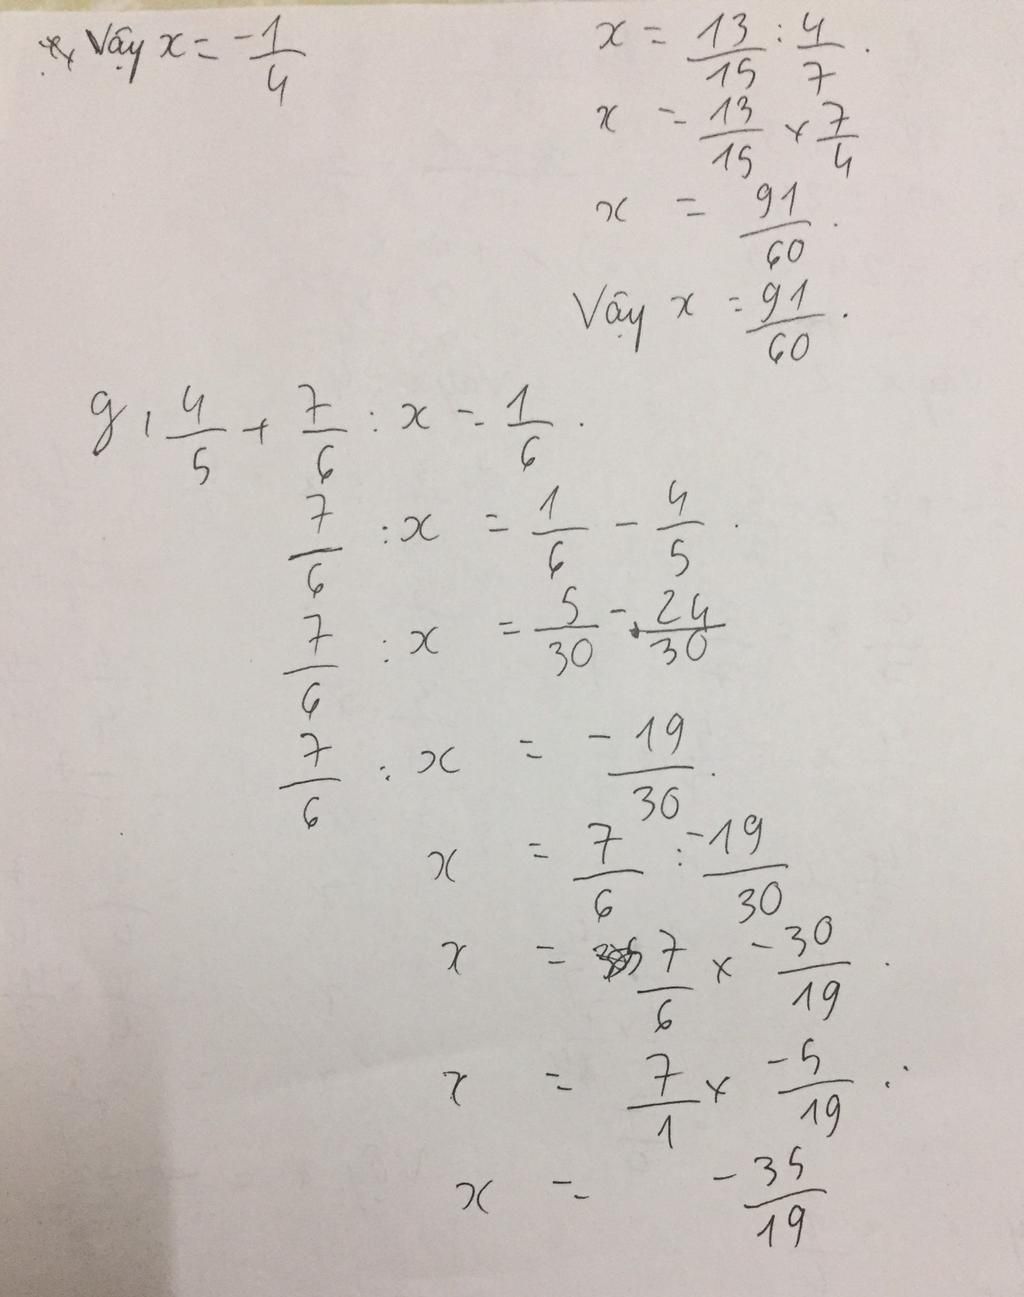 Vậy x = -1/4
x = 13/15 : 4/7 .
x = 13/15 x 7/4
x = 91/60 .
Vậy x = 91/60 .
g, 4/5 + 7/6 : x = 1/6 .
7/6 : x = 1/6 - 4/5 .
7/6 : x = 5/30 - 24/30
7/6 : x = -19/30 .
x = 7/6 : -19/30
x = 7/6 x -30/19 .
x = 7/1 x -5/19 .
x = -35/19